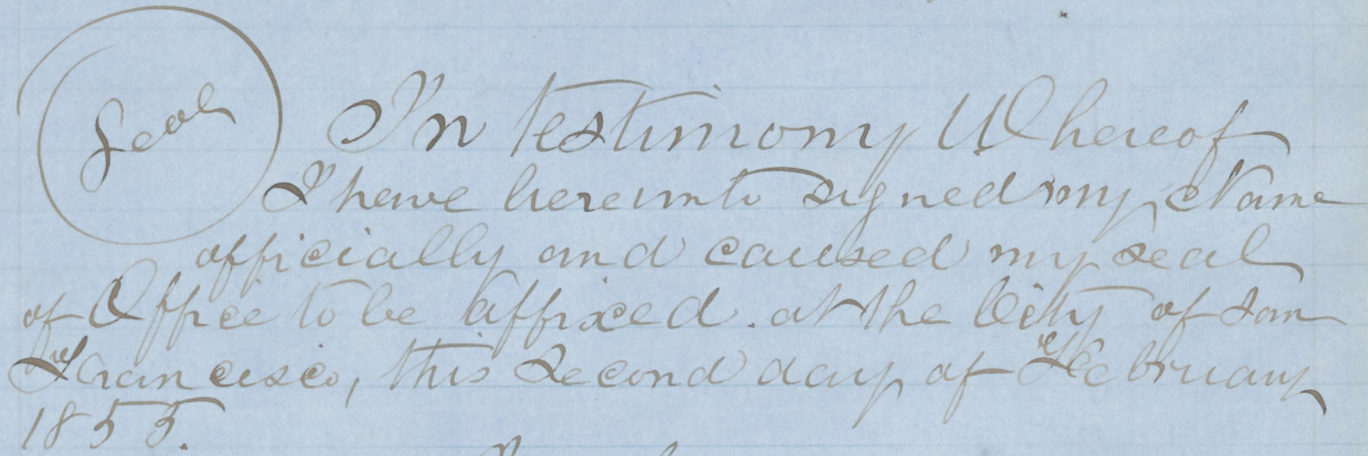 Seal
In testimony Whereof
I have hereunto signed my Name
officially and caused my seal
of Office to be affixed. at the City of San
Francisco, this Second day of February
1855.